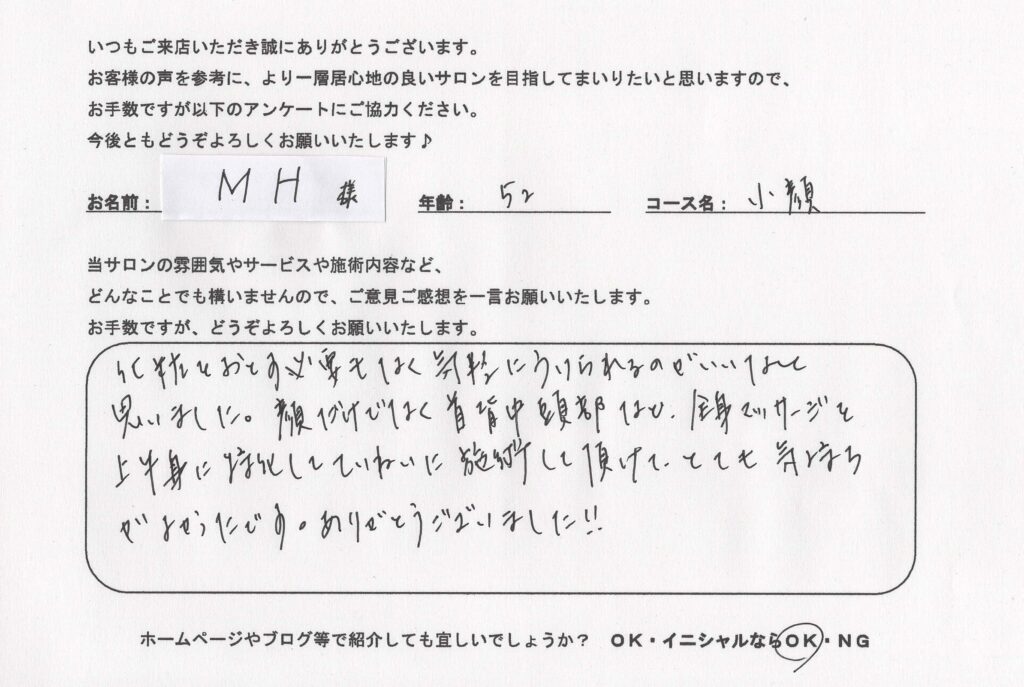 いつもご来店いただき誠にありがとうございます。
お客様の声を参考に、より一層居心地の良いサロンを目指してまいりたいと思いますので、
お手数ですが以下のアンケートにご協力ください。
今後ともどうぞよろしくお願いいたします♪
お名前： MH 様 年齢： 52 コース名： 小顔
当サロンの雰囲気やサービスや施術内容など、
どんなことでも構いませんので、ご意見ご感想を一言お願いいたします。
お手数ですが、どうぞよろしくお願いいたします。
化粧をおとす必要もなく気軽にうけられるのがいいなと
思いました。顔だけでなく首背中頭部など、全身マッサージを
上半身に特化してていねいに施術して頂けて、とても気持ち
がよかったです。ありがとうございました!!
ホームページやブログ等で紹介しても宜しいでしょうか？ OK・イニシャルならOK・NG